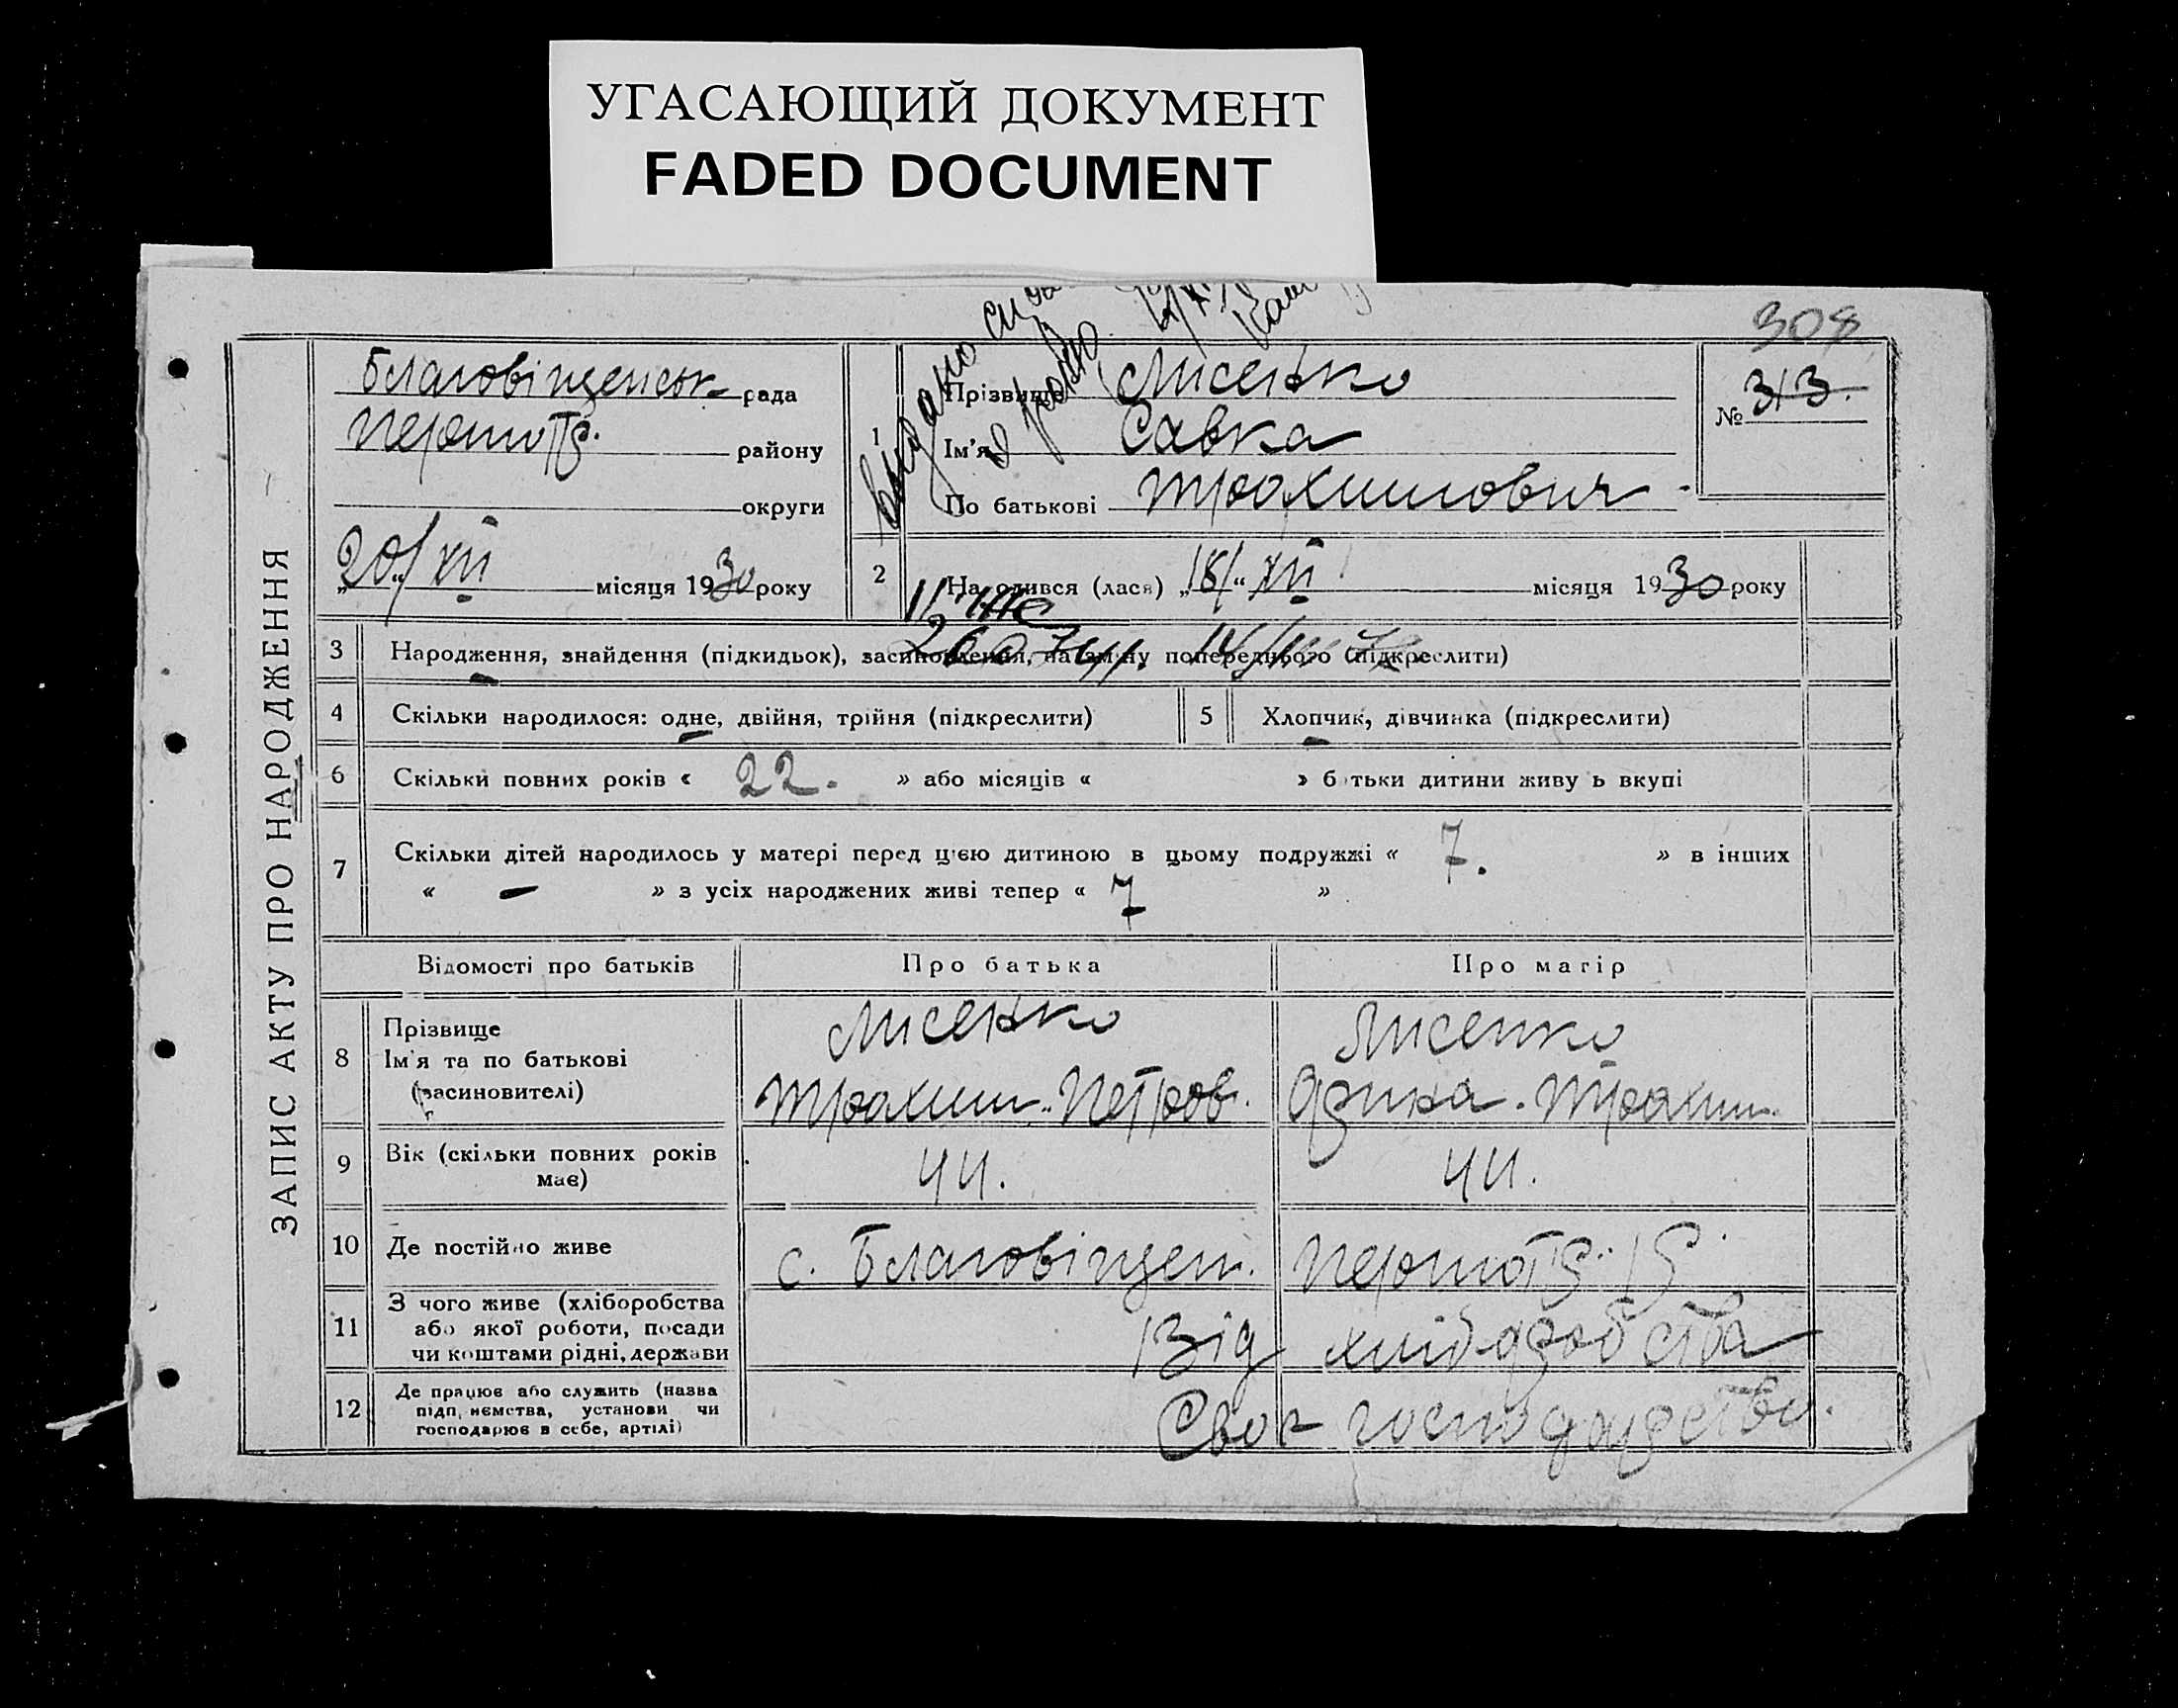 УГАСАЮЩИЙ ДОКУМЕНТ
FADED DOCUMENT
308
ЗАПИС АКТУ ПРО НАРОДЖЕННЯ
Благовіщенськ рада
району
округи
„20/“ XII місяця 1930 року
1
Прізвище Лисенко
Ім'я Савка
По батькові Трохимович
№ 313.
Видано
2
Народився (лася) „18/“ XII місяця 1930 року
3 Народження, знайдення (підкидьок), засиновлення, на заміну попереднього (підкреслити)
4 Скільки народилося: одне, двійня, трійня (підкреслити)
5 Хлопчик, дівчинка (підкреслити)
6 Скільки повних років « 22. » або місяців « » батьки дитини живуть вкупі
7 Скільки дітей народилось у матері перед цією дитиною в цьому подружжі « 7. » в інших
« – » з усіх народжених живі тепер « 7 »
Відомості про батьків Про батька Про матір
8 Прізвище Лисенко Лисенко
Ім'я та по батькові
(засиновителі) Трохим. Петров. Трохим.
9 Вік (скільки повних років 44. 44.
має)
10 Де постійно живе с. Благовіщен.
11 З чого живе (хліборобства
або якої роботи, посади Від хліборобства
чи коштами рідні, держави
12 Де працює або служить (назва
підприємства, установи чи господарство.
господарює в себе, артілі)